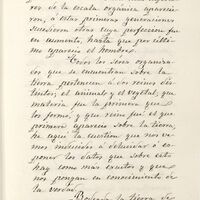 res de la escala orgánica aparecie-
ron, á estas primeras generaciones
sucedieron otras cuya perfección fué
en aumento, hasta que por últi-
mo apareció el hombre.
Todos los seres organiza-
dos que se encuentran sobre la
tierra pertenecen á dos reinos dis-
tintos; el animal y el vegetal; que
materia fué la primera que
los formó, y que reino fué el que
primero apareció sobre la tierra,
he aquí la cuestión que nos ve-
mos inducidos á dilucidar ó ex-
poner los datos que sobre esto
hay como mas exactos y que
nos pongan en conocimiento de
la verdad.
la tierra de